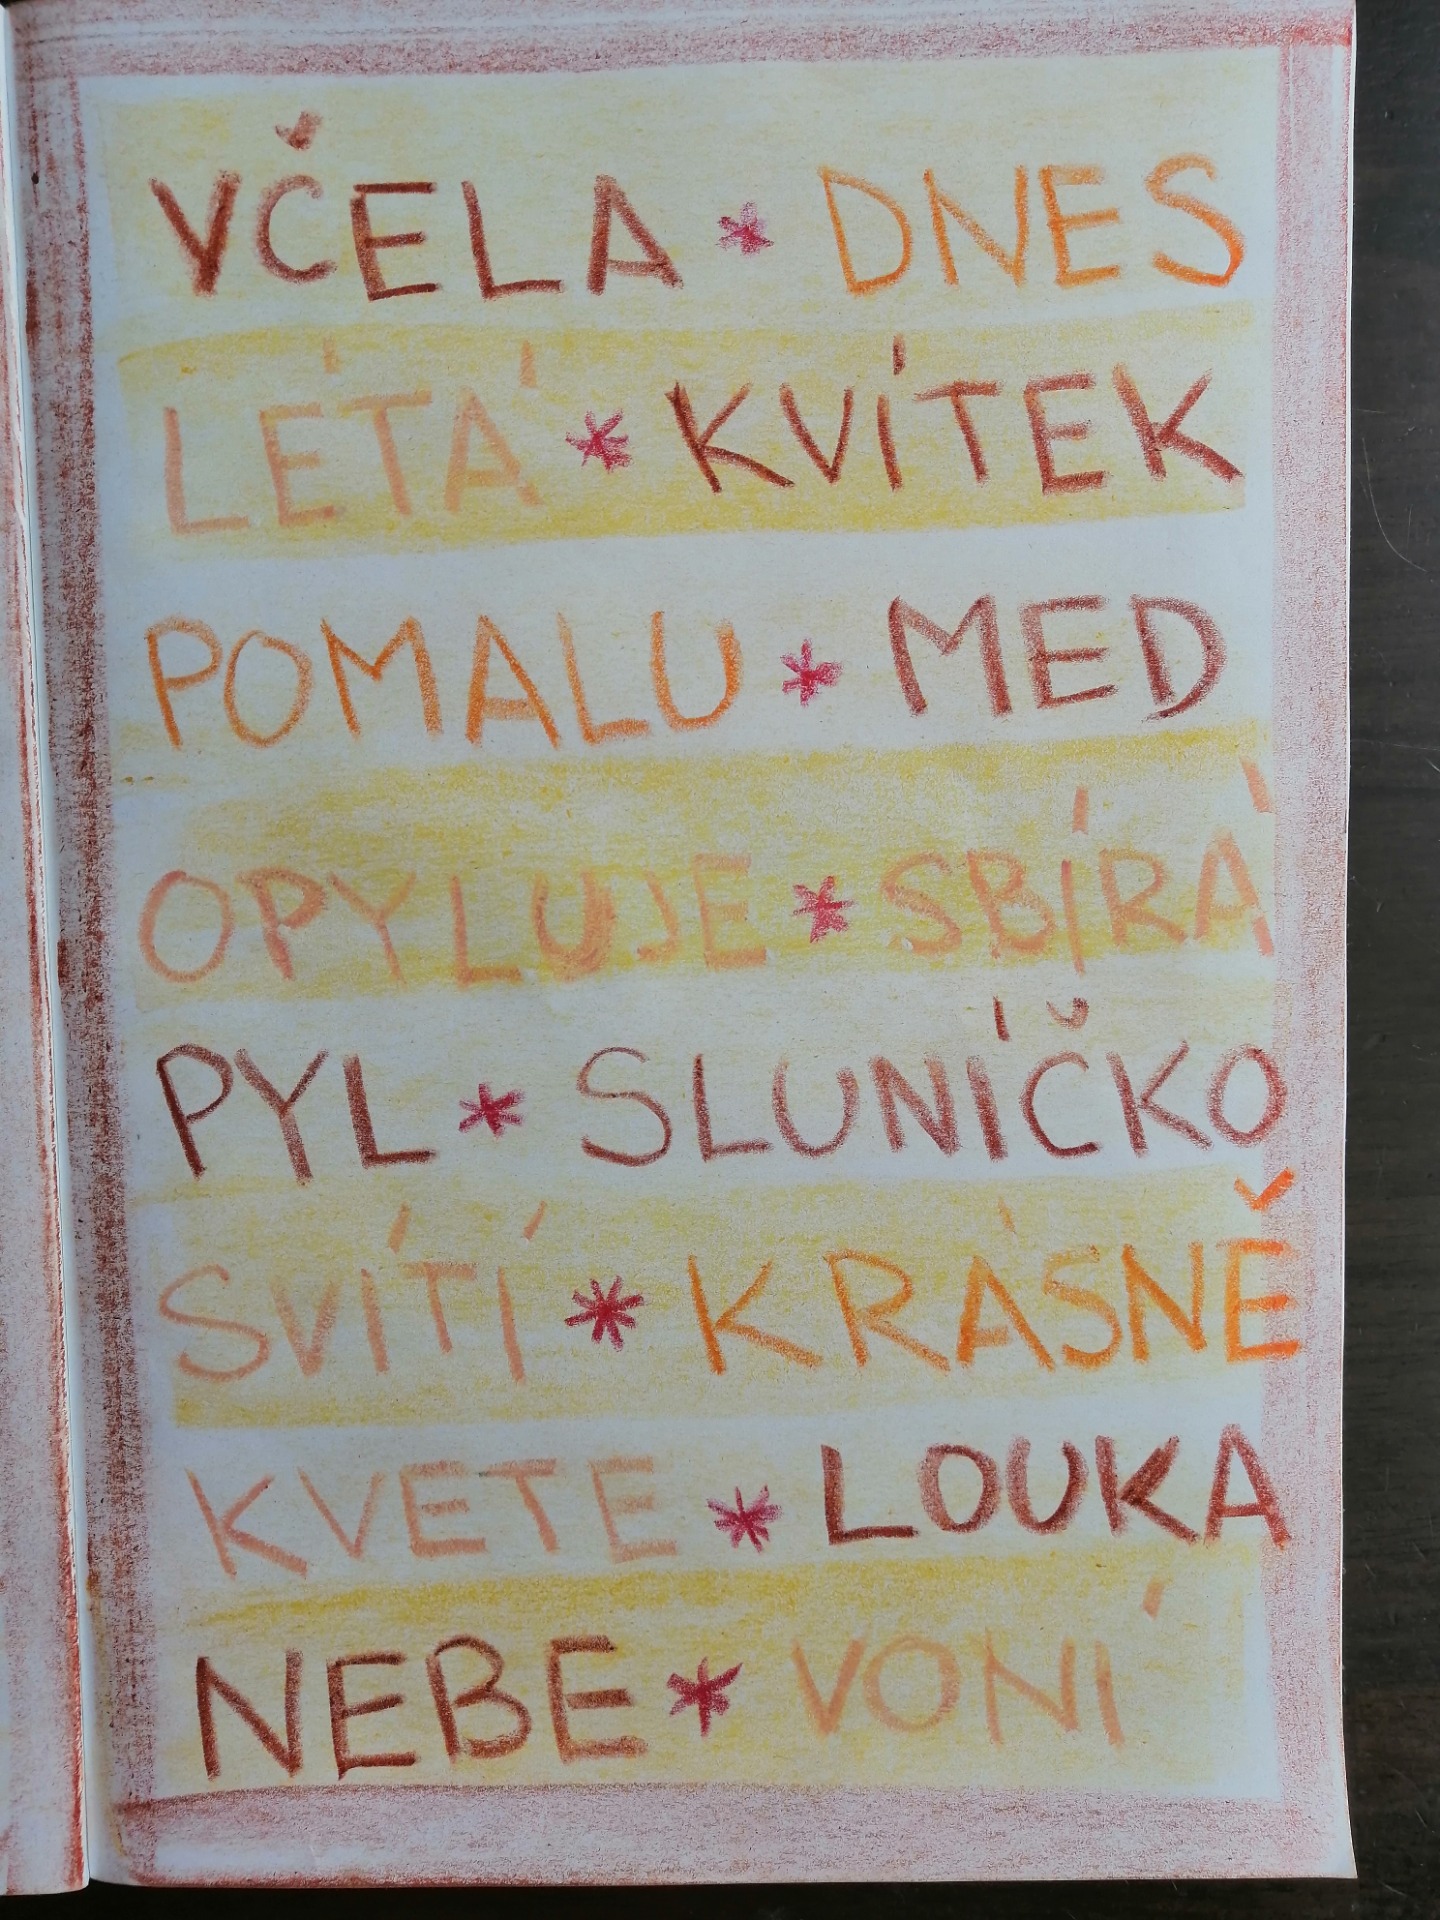 VČELA * DNES
LÉTÁ * KVÍTEK
POMALU * MED
OPYLUJE * SBÍRÁ
PYL * SLUNÍČKO
SVÍTÍ * KRÁSNĚ
KVETE * LOUKA
NEBE * VONÍ